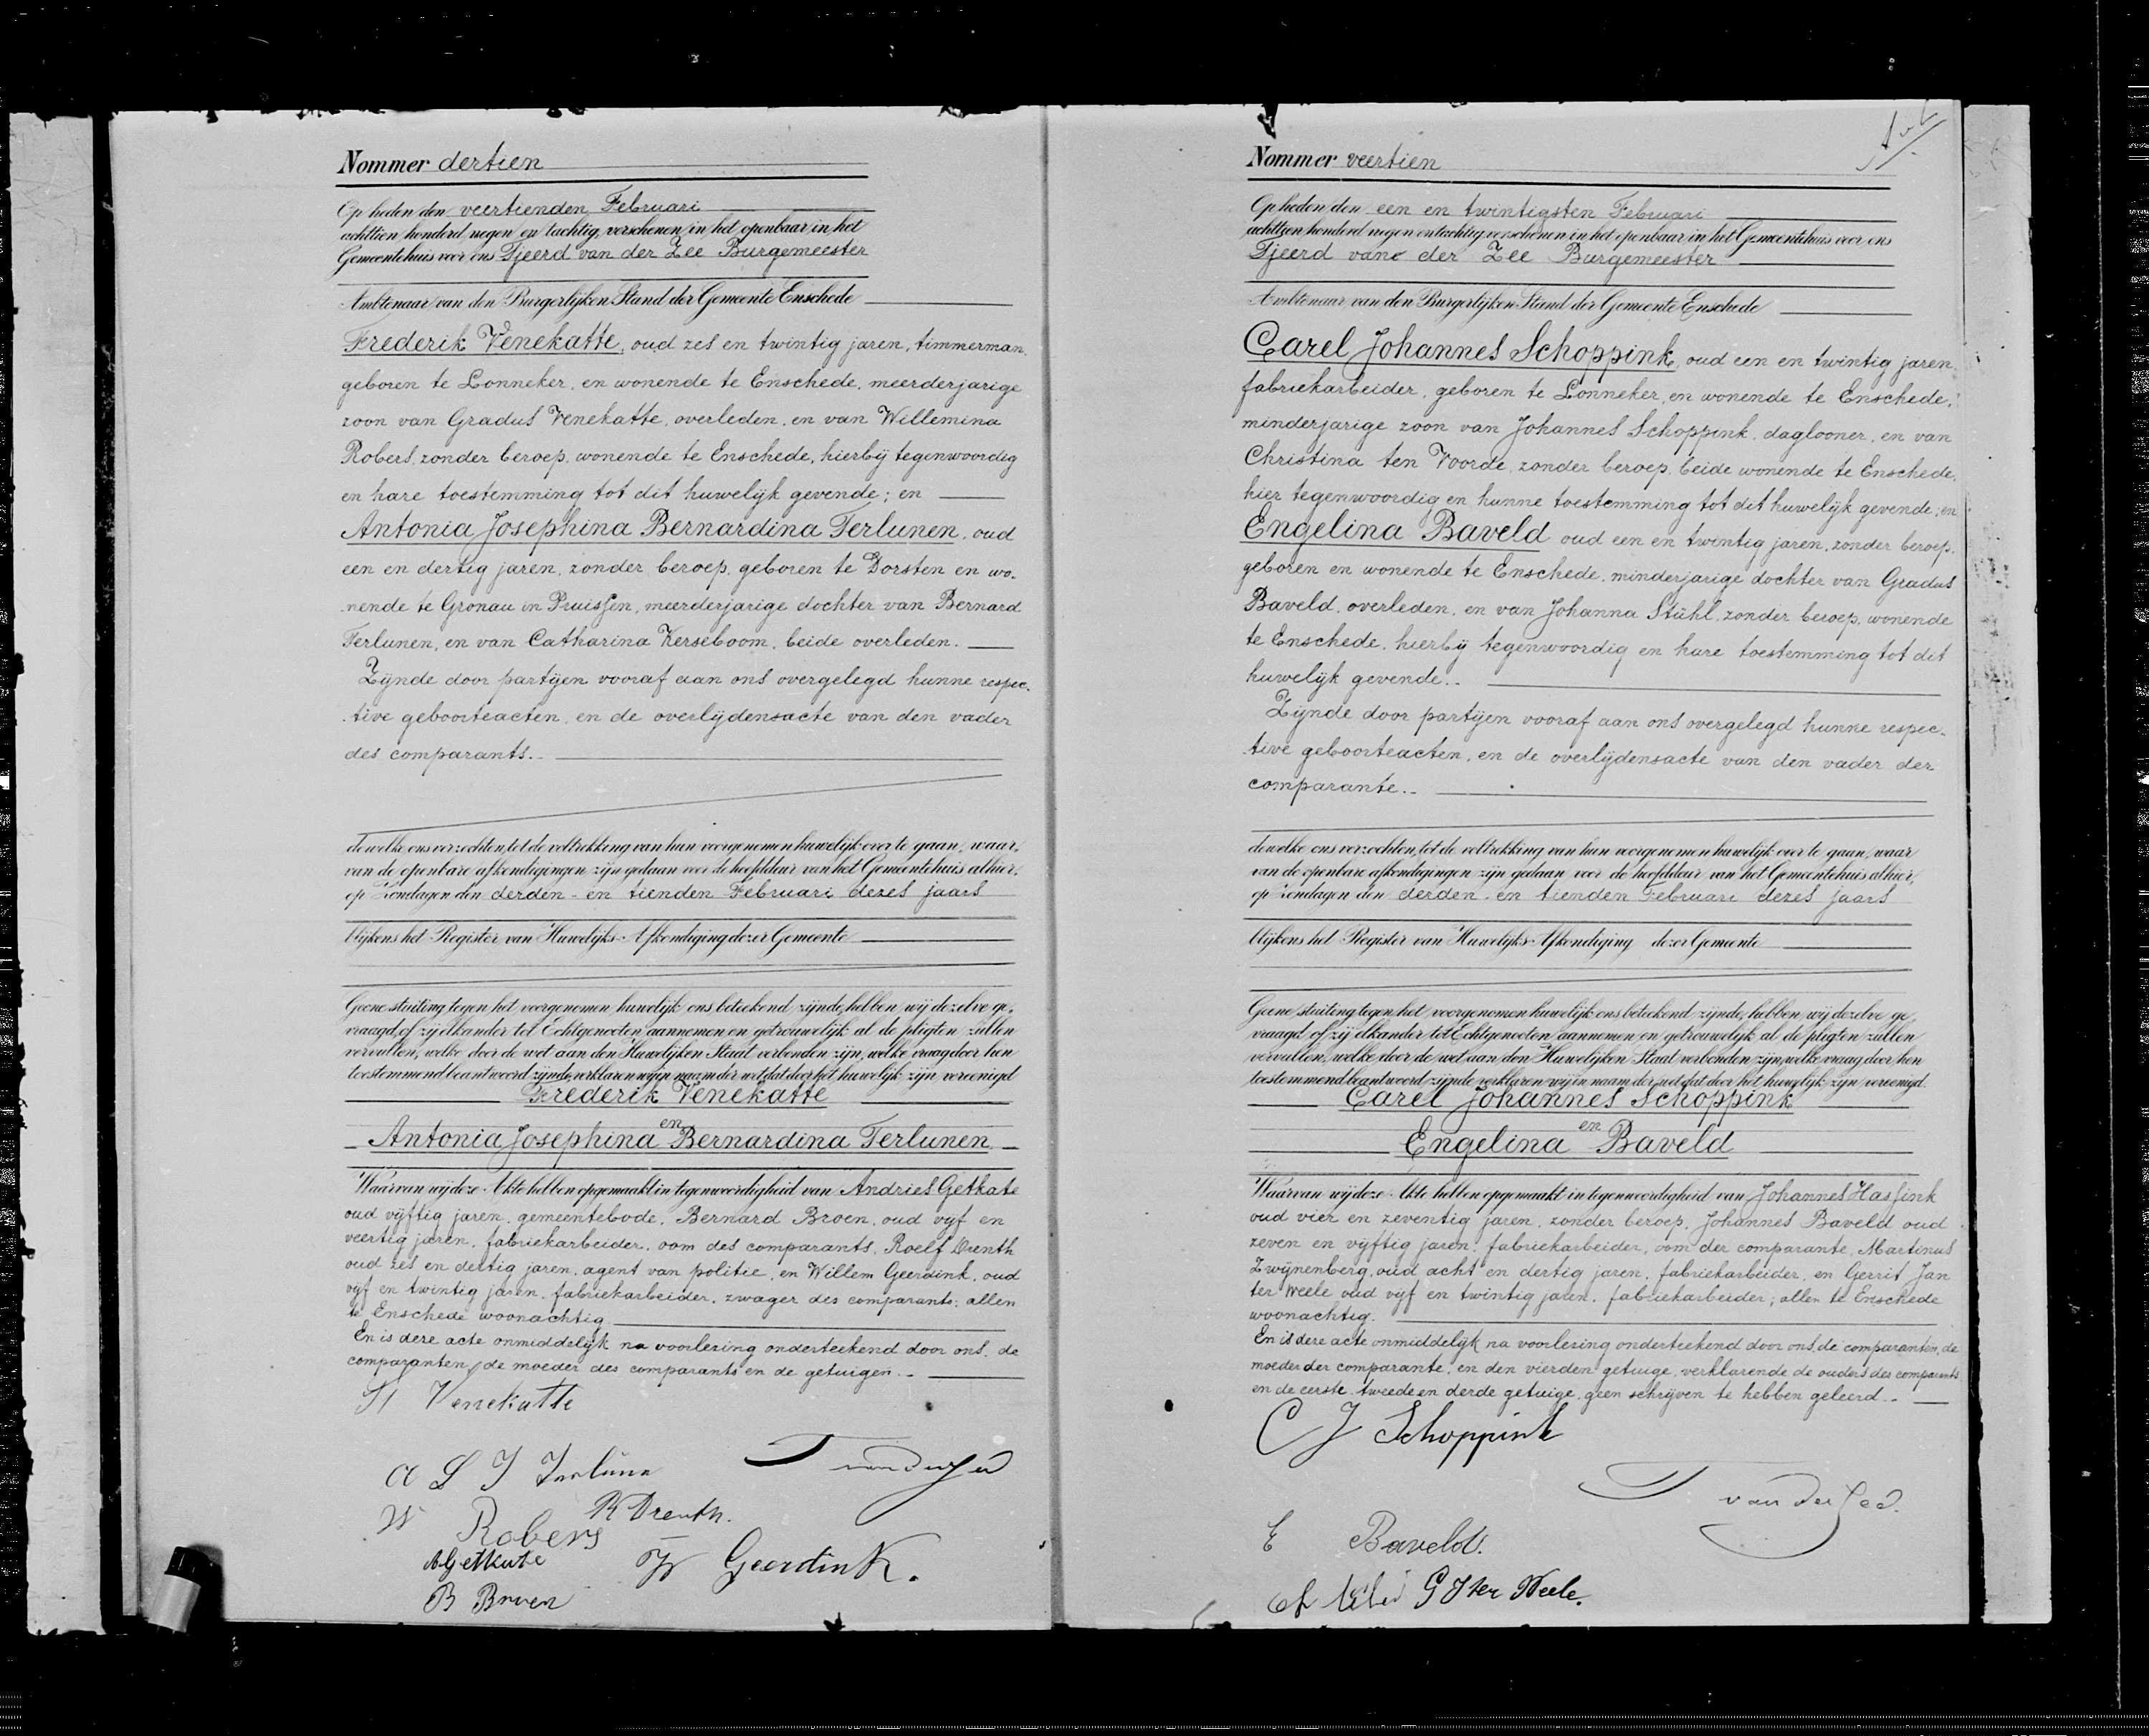 Nommer dertien
Op heden den veertienden Februari
achttien honderd negen en tachtig, verschenen in het openbaar in het
Gemeentehuis voor ons Tjeerd van der Zee Burgemeester
Ambtenaar van den Burgerlijken Stand der Gemeente Enschede
Frederik Venekatte, oud zes en twintig jaren, timmerman,
geboren te Lonneker, en wonende te Enschede, meerderjarige
zoon van Gradus Venekatte, overleden, en van Willemina
Robers, zonder beroep, wonende te Enschede, hierbij tegenwoordig
en hare toestemming tot dit huwelijk gevende; en
Antonia Josephina Bernardina Terlunen, oud
een en dertig jaren, zonder beroep, geboren te Dorsten en wo-
nende te Gronau in Pruissen, meerderjarige dochter van Bernard
Terlunen, en van Catharina Kerseboom, beide overleden.
Zijnde door partijen vooraf aan ons overgelegd hunne respec-
tive geboorteacten, en de overlijdensacte van den vader
des comparants.
dewelke ons verzochten, tot de voltrekking van hun voorgenomen huwelijk over te gaan, waar-
van de openbare afkondigingen zijn gedaan voor de hoofddeur van het Gemeentehuis alhier,
op Zondagen den derden en tienden Februari dezes jaars
blijkens het Register van Huwelijks-Afkondiging dezer Gemeente
Geene stuiting tegen het voorgenomen huwelijk ons beteekend zijnde, hebben wij dezelve ge-
vraagd, of zij elkander tot Echtgenooten aannemen en getrouwelijk al de pligten zullen
vervullen, welke door de wet aan den Huwelijken Staat verbonden zijn, welke vraag door hen
toestemmend beantwoord zijnde, verklaren wij in naam der wet dat door het huwelijk zijn vereenigd
Frederik Venekatte
en
Antonia Josephina Bernardina Terlunen
Waarvan wij deze Akte hebben opgemaakt in tegenwoordigheid van Andries Getkate
oud vijftig jaren, gemeentebode, Bernard Broen, oud vijf en
veertig jaren, fabriekarbeider, oom des comparants, Roelf Drenth
oud zes en dertig jaren, agent van politie, en Willem Geerdink, oud
vijf en twintig jaren, fabriekarbeider, zwager des comparants; allen
te Enschede woonachtig
En is deze acte onmiddelijk na voorlezing onderteekend door ons, de
comparanten, de moeder des comparants en de getuigen.
Venekatte
R Drenth.
W Robers
AGetkate
W Geerdink.
B Broen
Nommer veertien
Op heden den een en twintigsten Februari
achttien honderd negen en tachtig, verschenen in het openbaar in het Gemeentehuis voor ons
Tjeerd van der Zee Burgemeester
Ambtenaar van den Burgerlijken Stand der Gemeente Enschede
Carel Johannes Schoppink, oud een en twintig jaren,
fabriekarbeider, geboren te Lonneker, en wonende te Enschede,
minderjarige zoon van Johannes Schoppink, daglooner, en van
Christina ten Voorde, zonder beroep, beide wonende te Enschede,
hier tegenwoordig en hunne toestemming tot dit huwelijk gevende; en
Engelina Baveld oud een en twintig jaren, zonder beroep,
geboren en wonende te Enschede, minderjarige dochter van Gradus
Baveld, overleden, en van Johanna Stühl, zonder beroep, wonende
te Enschede, hierbij tegenwoordig en hare toestemming tot dit
huwelijk gevende.
Zijnde door partijen vooraf aan ons overgelegd hunne respec-
tive geboorteacten, en de overlijdensacte van den vader der
comparante.
dewelke ons verzochten, tot de voltrekking van hun voorgenomen huwelijk over te gaan, waar
van de openbare afkondigingen zijn gedaan voor de hoofddeur van het Gemeentehuis alhier,
op Zondagen den derden en tienden Februari dezes jaars
blijkens het Register van Huwelijks-Afkondiging dezer Gemeente
Geene stuiting tegen het voorgenomen huwelijk ons beteekend zijnde, hebben wij dezelve ge-
vraagd, of zij elkander tot Echtgenooten aannemen en getrouwelijk al de pligten zullen
vervullen, welke door de wet aan den Huwelijken Staat verbonden zijn, welke vraag door hen
toestemmend beantwoord zijnde, verklaren wij in naam der wet dat door het huwelijk zijn vereenigd
Carel Johannes Schoppink
en
Engelina Baveld
Waarvan wij deze Akte hebben opgemaakt in tegenwoordigheid van Johannes Hassink
oud vier en zeventig jaren, zonder beroep, Johannes Baveld oud
zeven en vijftig jaren, fabriekarbeider, oom der comparante, Martinus
Zwijnenberg, oud acht en dertig jaren, fabriekarbeider, en Gerrit Jan
ter Weele oud vijf en twintig jaren, fabriekarbeider; allen te Enschede
woonachtig.
En is deze acte onmiddelijk na voorlezing onderteekend door ons, de comparanten, de
moeder der comparante, en den vierden getuige, verklarende de ouders des comparants
en de eerste, tweede en derde getuige, geen schrijven te hebben geleerd.
C J Schoppink
van der Zee.
E Baveld.
G J ter Weele.